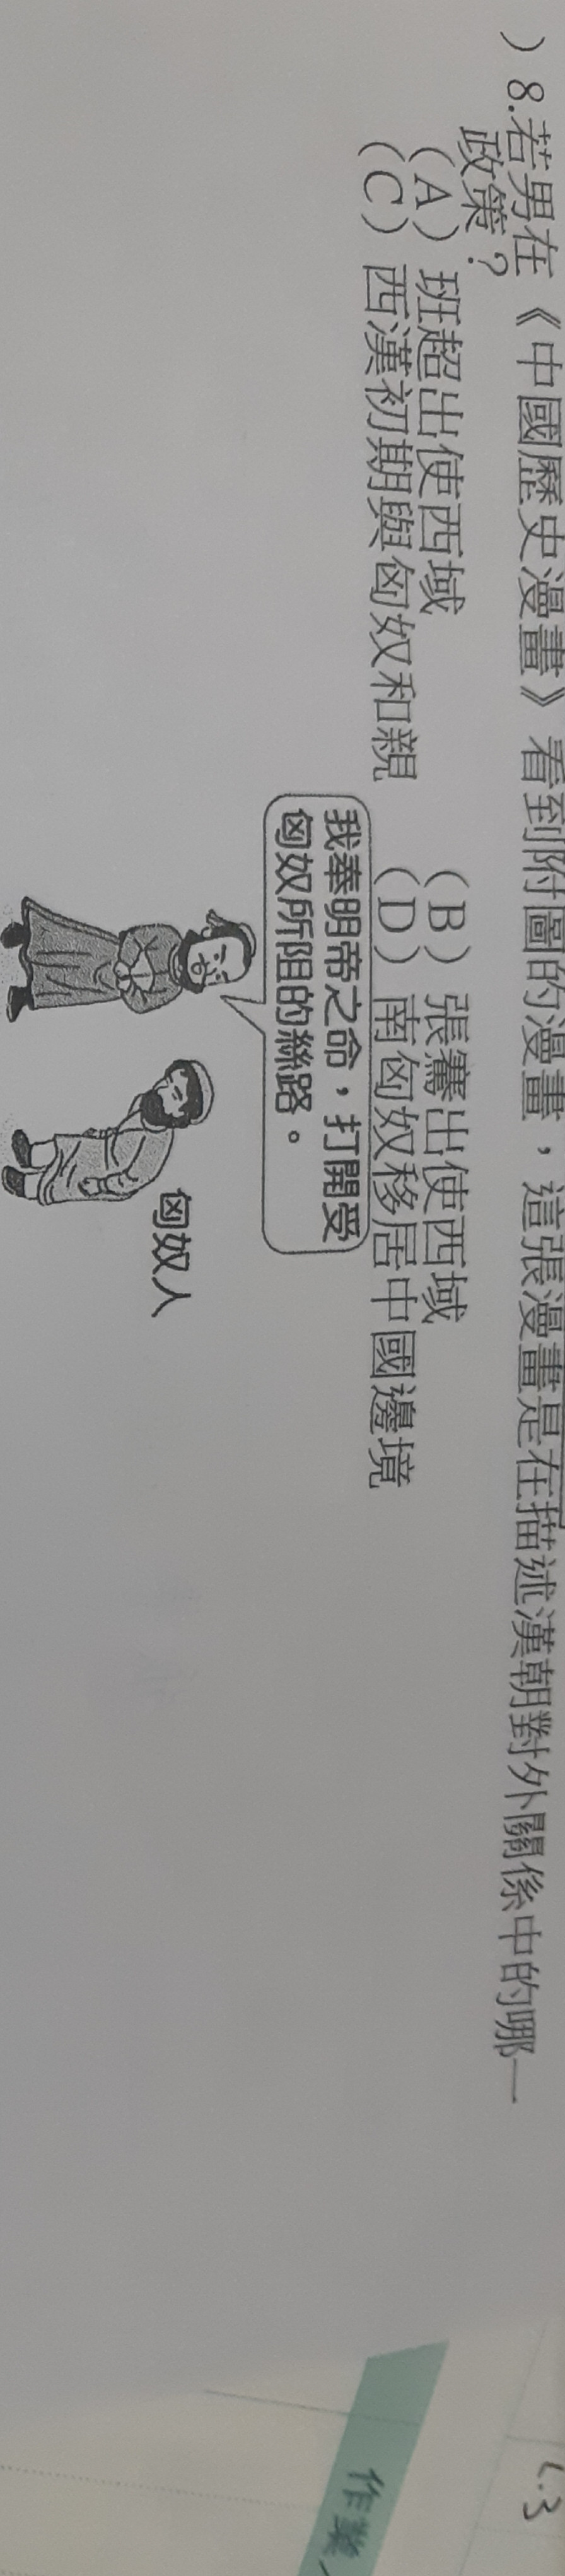 ）8.若男在《中國歷史漫畫》看到附圖的漫畫，這張漫畫是在描述漢朝對外關係中的哪一
政策？
（A）班超出使西域　（B）張騫出使西域
（C）西漢初期與匈奴和親　（D）南匈奴移居中國邊境
我奉明帝之命，打開受
匈奴所阻的絲路。
匈奴人
作業